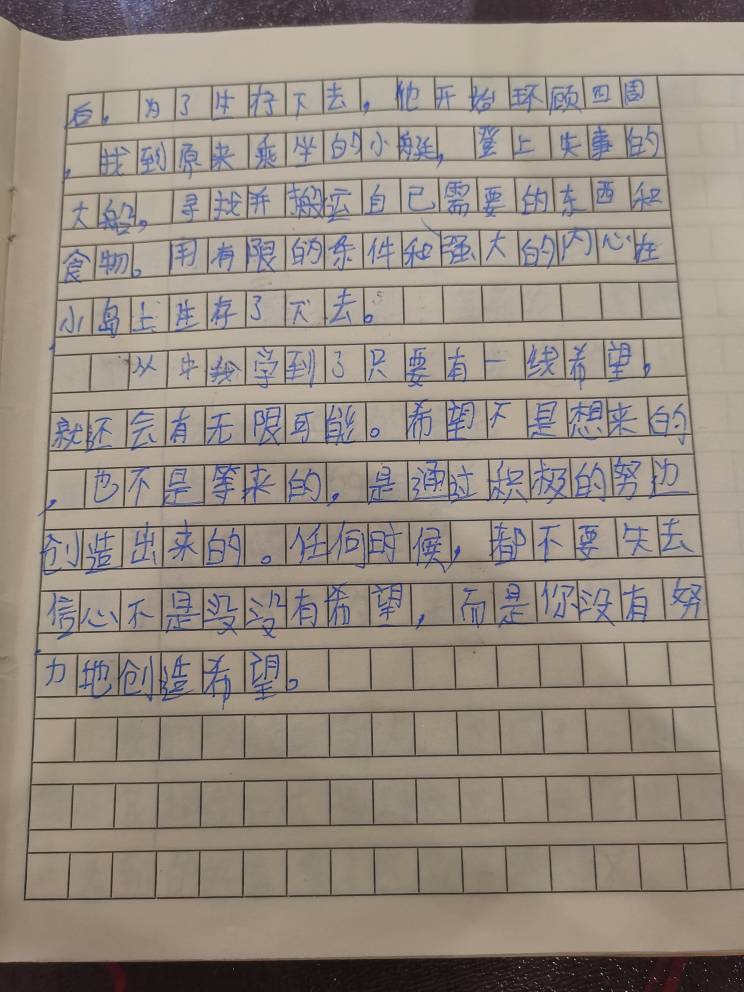 后，为了生存下去，他开始环顾四周
，找到原来乘坐的小艇，登上失事的
大船，寻找并搬运自己需要的东西和
食物。用有限的条件和强大的内心在
小岛上生存了下去。
从中我学到了只要有一线希望，
就还会有无限可能。希望不是想来的
，也不是等来的，是通过积极的努边
创造出来的。任何时候，都不要失去
信心不是没没有希望，而是你没有努
力地创造希望。